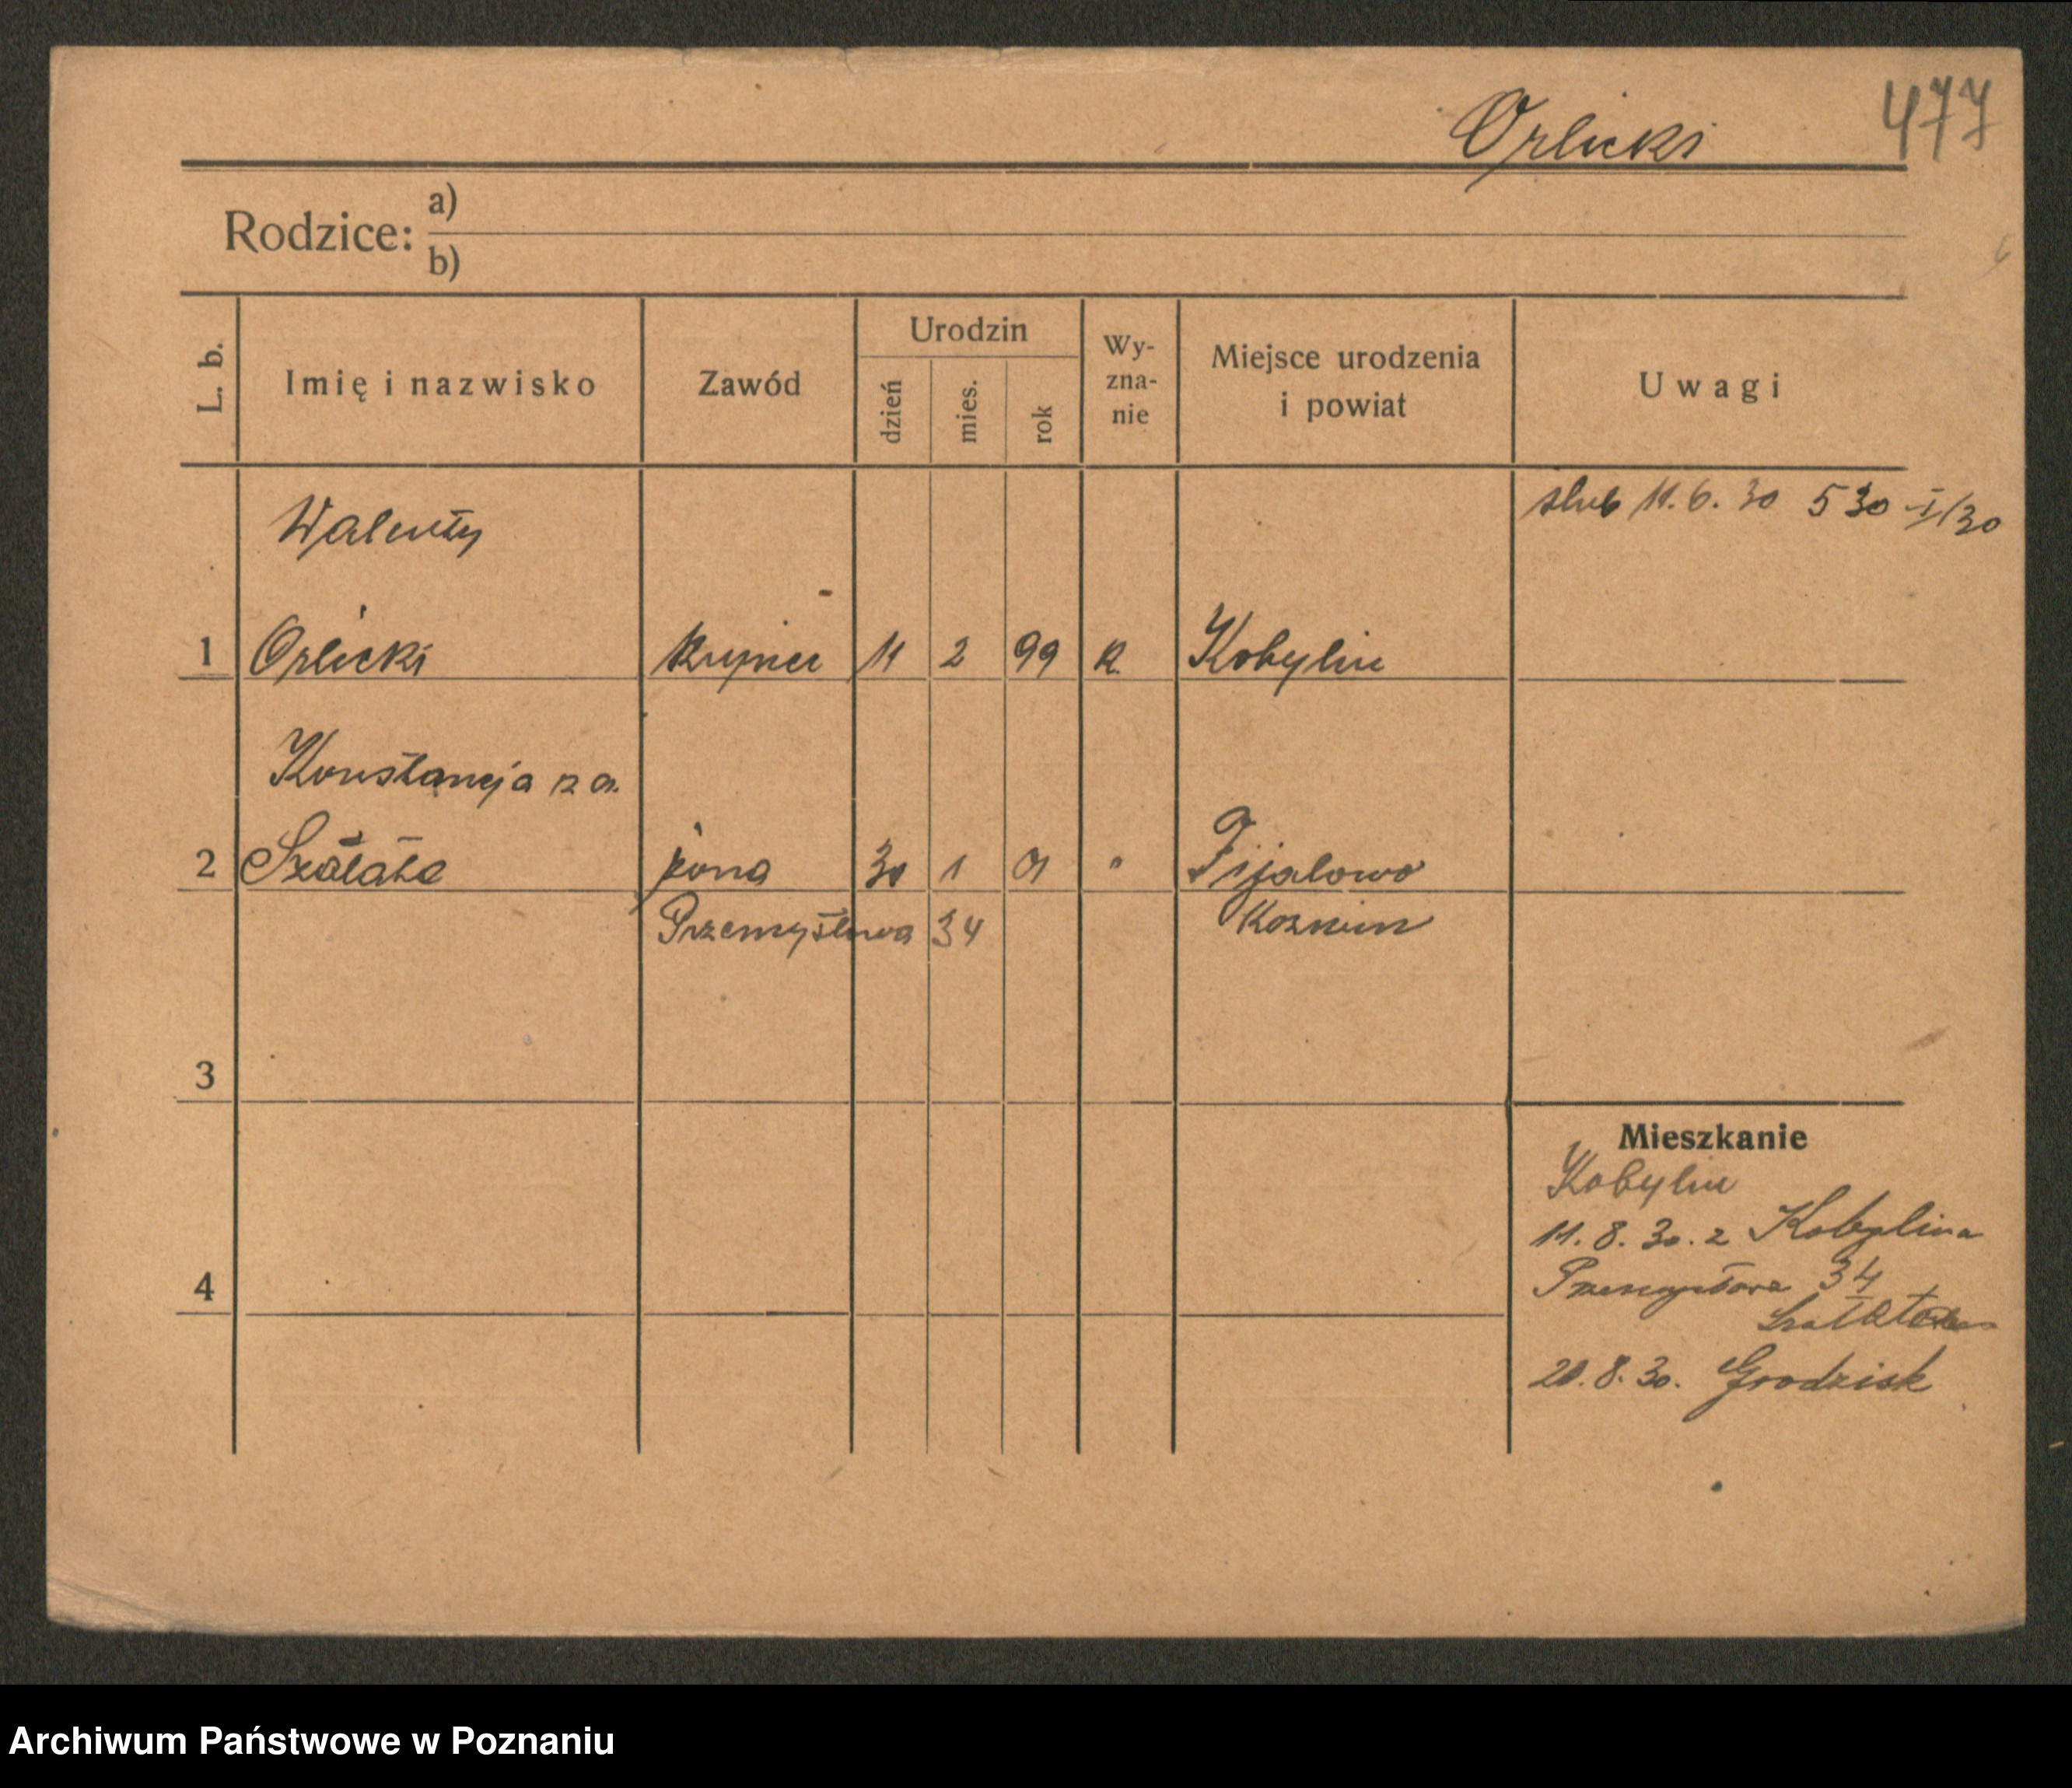 Orlicki 477
Rodzice: a)
b)
L. b. Imię i nazwisko Zawód Urodzin dzień mies. rok Wy-zna-nie Miejsce urodzenia i powiat Uwagi
ślub 11. 6. 30 530 I/30
Walenty
1 Orlicki kupiec 11 2 99 k. Kobylin
Konstancja z d.
2 Szałata żona 30 1 01 " Fijałowo
Przemysłowa 34 Koźmin
3
Mieszkanie
Kobylin
11. 8. 30. z Kobylina
4 Przemysłowa 34
20. 8. 30. Grodzisk
Archiwum Państwowe w Poznaniu